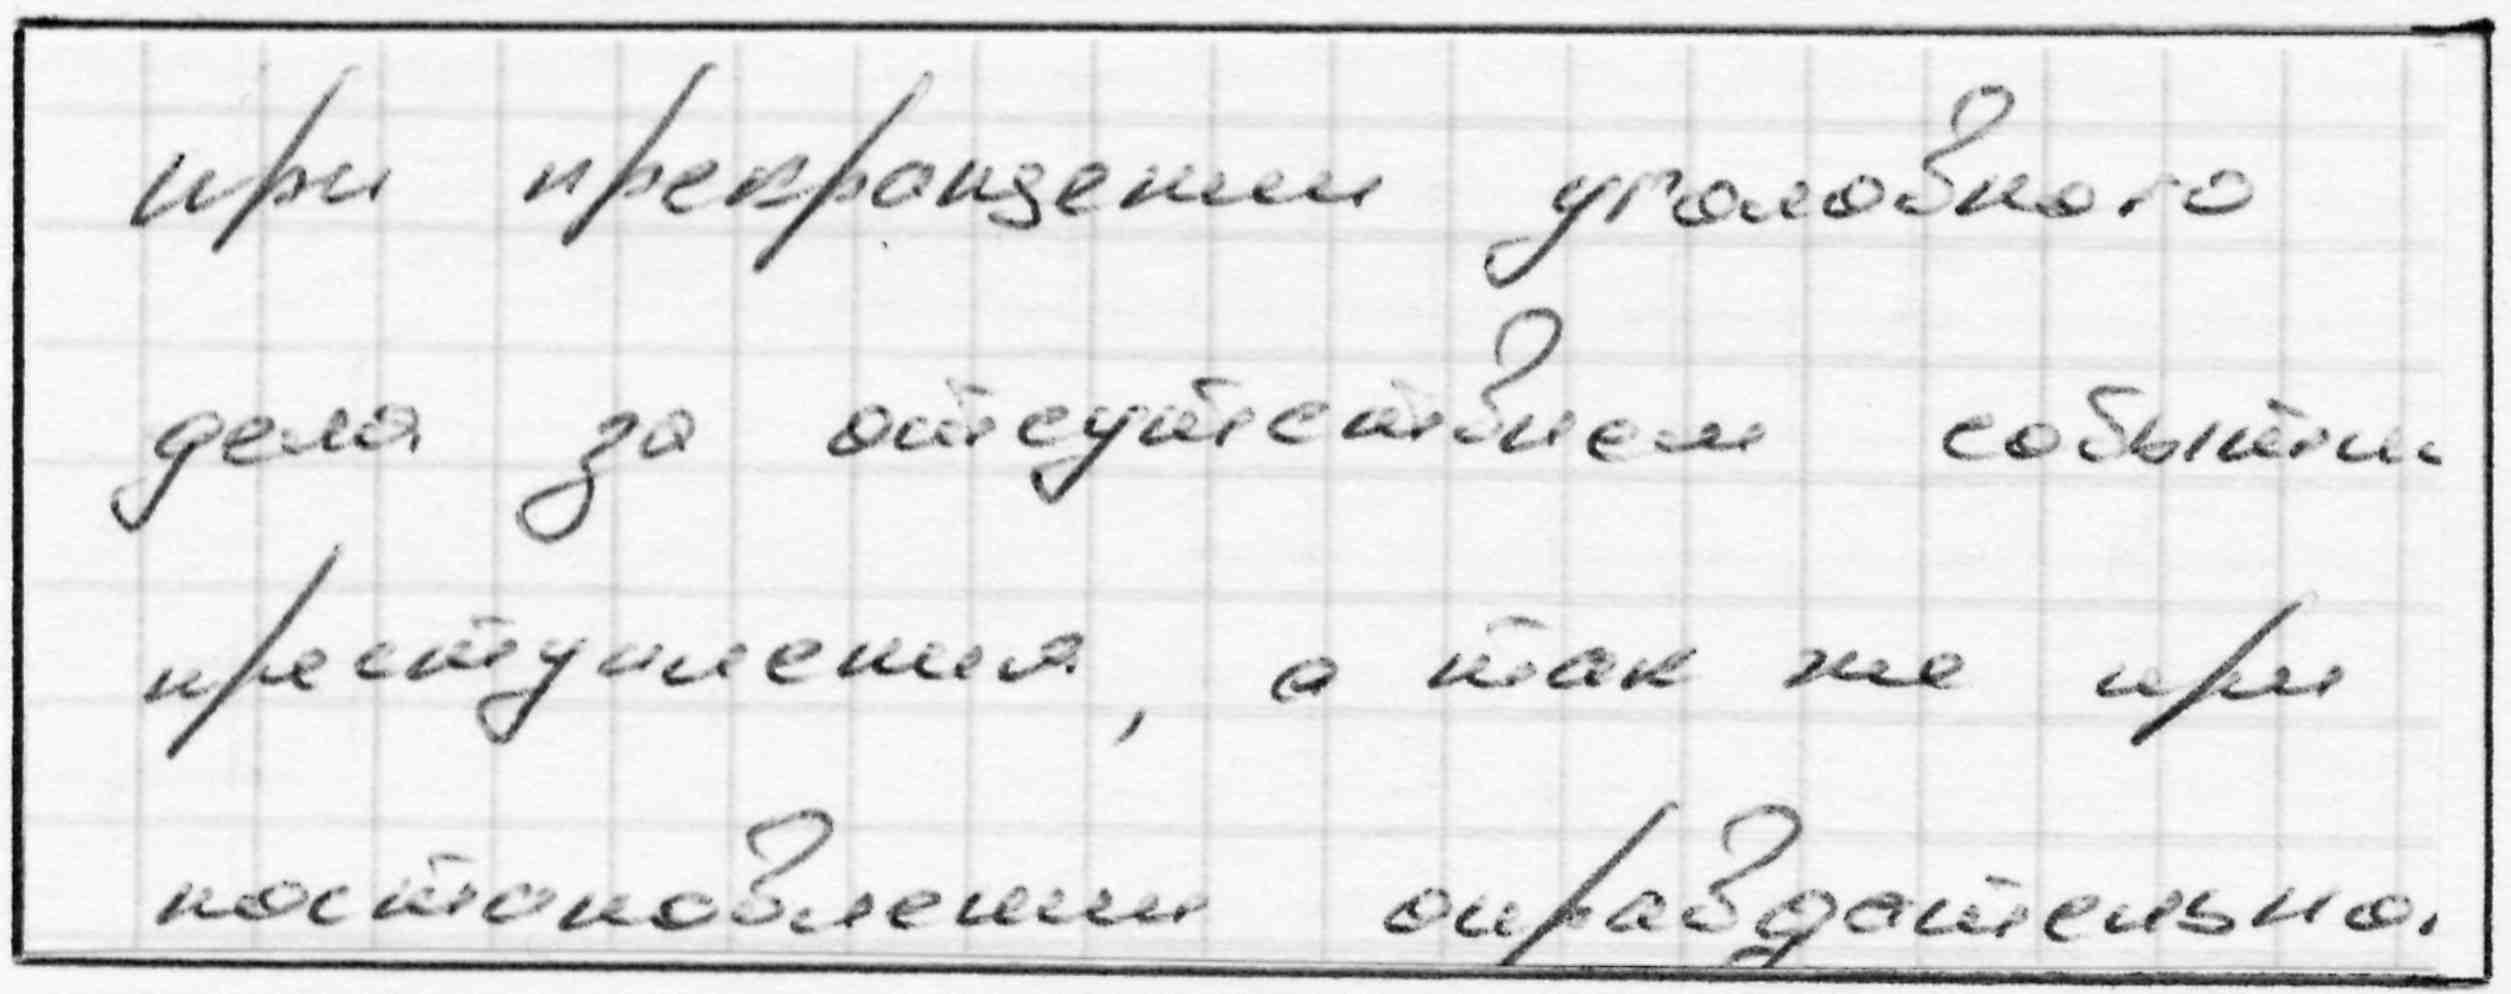 при прекращении уголовного
дела за отсутствием события
преступления, а так же при
постановлении оправдательно.